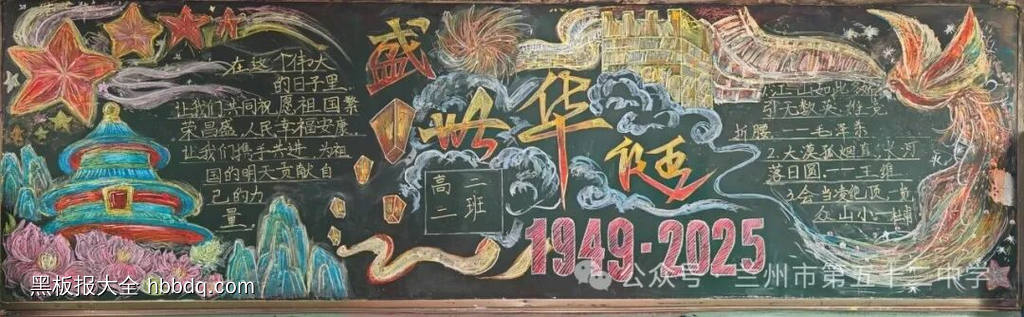 在这个伟大
的日子里
让我们共同祝愿祖国繁
荣昌盛,人民幸福安康.
让我们携手共进,为祖
国的明天贡献自
己的力
量.
盛
世
华
诞
高二
二班
1949·2025
江山如此多娇
引无数英雄竞
折腰.——毛泽东
2.大漠孤烟直,长河
落日圆.——王维
3.会当凌绝顶,一览
众山小.
黑板报大全 hbbdq.com
公众号 兰州市第五十二中学